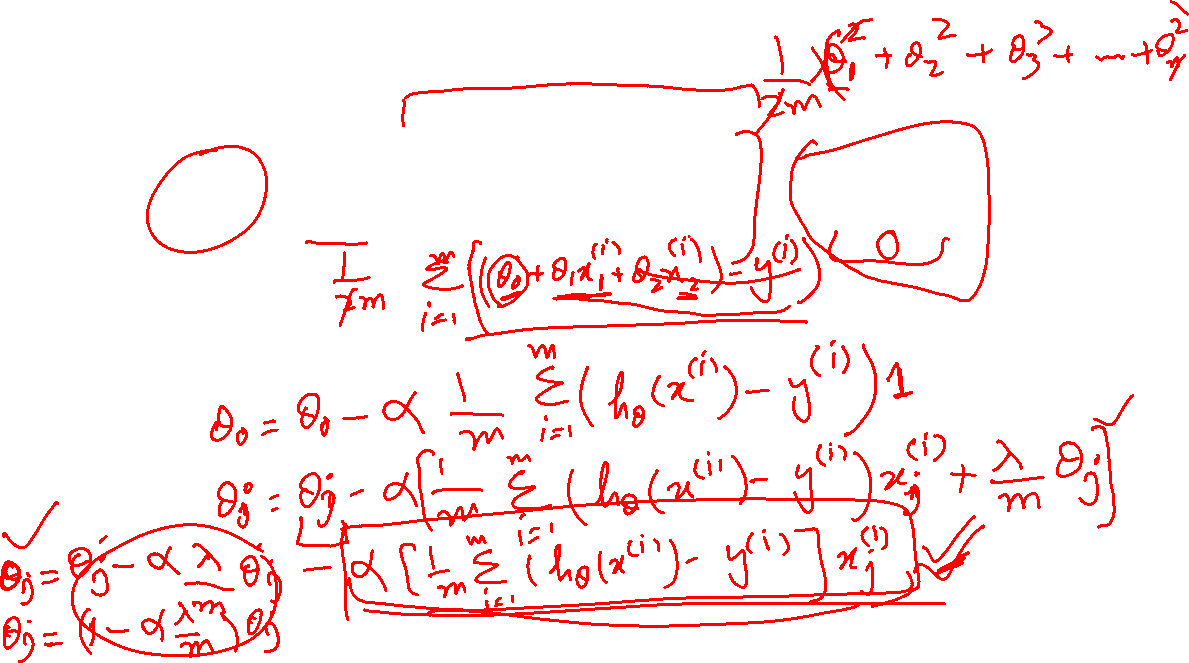 1/2m (θ₁² + θ₂² + θ₃² + ... + θₙ²)
1/2m Σᵢ₌₁ᵐ ((θ₀ + θ₁x₁⁽ⁱ⁾ + θ₂x₂⁽ⁱ⁾) - y⁽ⁱ⁾) 0
θ₀ = θ₀ - α 1/m Σᵢ₌₁ᵐ (h_θ(x⁽ⁱ⁾) - y⁽ⁱ⁾) 1
θⱼ = θⱼ - α [1/m Σᵢ₌₁ᵐ (h_θ(x⁽ⁱ⁾) - y⁽ⁱ⁾) xⱼ⁽ⁱ⁾ + λ/m θⱼ]
θⱼ = θⱼ - α λ/m θⱼ - α [1/m Σᵢ₌₁ᵐ (h_θ(x⁽ⁱ⁾) - y⁽ⁱ⁾] xⱼ⁽ⁱ⁾
θⱼ = (1 - α λ/m) θⱼ